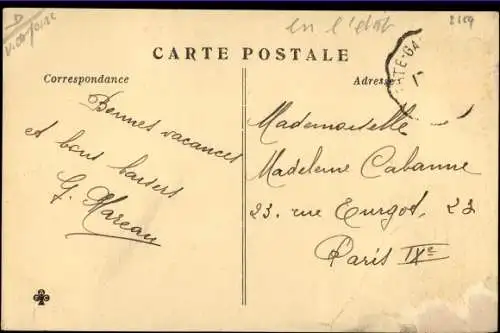 en l'état
2169
CARTE POSTALE
Correspondance
Adresse
Bonnes vacances
et bons baisers
G. Mareau
Mademoiselle
Madeleine Cabanne
23, rue Turgot, 23
Paris IXe